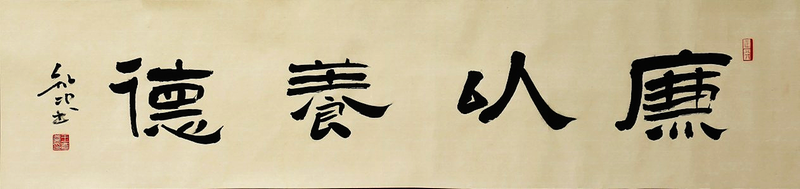 廉以養德